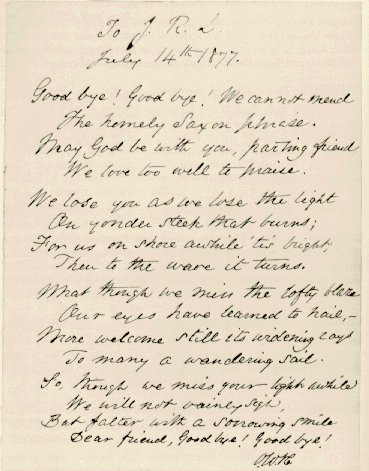 To J. R. L.
July 14th 1877.
Good bye! Good bye! We cannot mend
The homely Saxon phrase.
May God be with you, parting friend
We love too well to praise.
We lose you as we lose the light
On yonder steek that burns;
For us on shore awhile 'tis bright,
Then to the wave it turns.
What though we miss the lofty blaze
Our eyes have learned to hail,–
More welcome still its widening rays
To many a wandering sail.
So, though we miss your light awhile
We will not vainly sigh,
But falter with a sorrowing smile
Dear friend, Good bye! Good bye!
O.W.H.